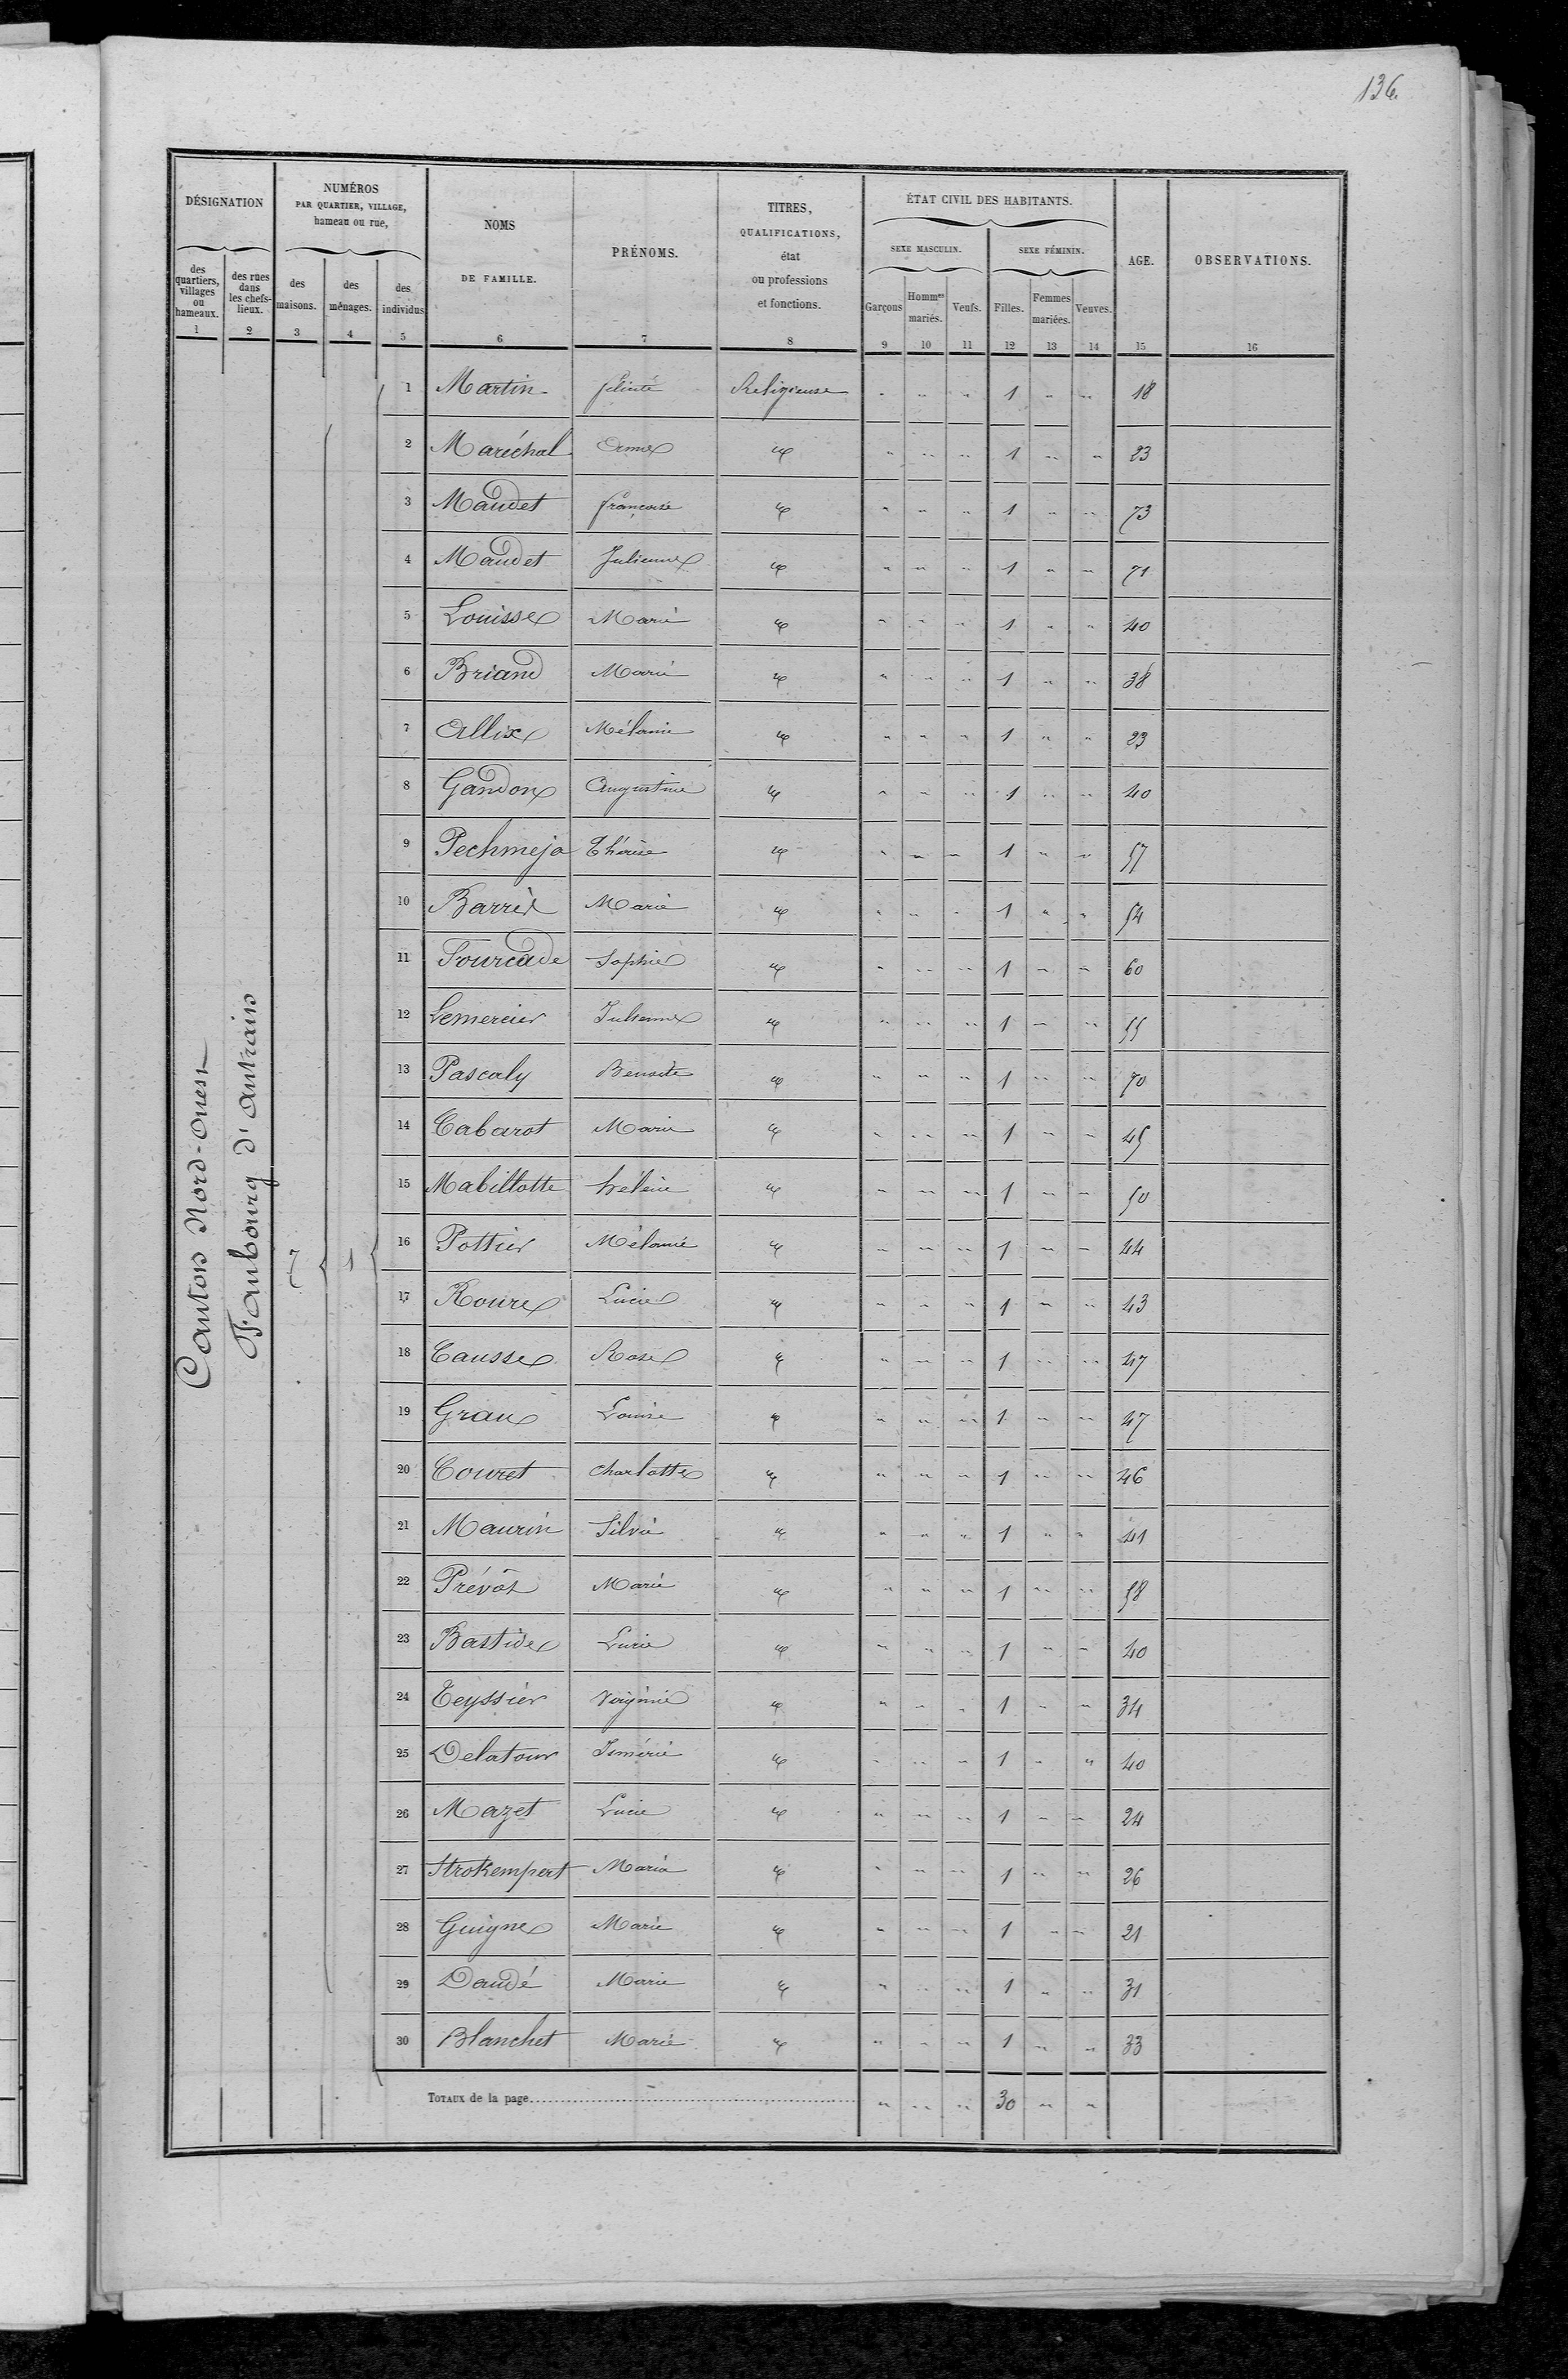 136
DÉSIGNATION
NUMÉROS
PAR QUARTIER, VILLAGE,
hameau ou rue,
NOMS
DE FAMILLE.
PRÉNOMS.
TITRES,
QUALIFICATIONS,
état
ou professions
et fonctions.
ÉTAT CIVIL DES HABITANTS.
SEXE MASCULIN.
SEXE FÉMININ.
AGE.
OBSERVATIONS.
des quartiers, villages ou hameaux.
des rues dans les chefs-lieux.
des maisons.
des ménages.
des individus
Garçons
Hommes mariés.
Veufs.
Filles.
Femmes mariées.
Veuves.
1 2 3 4 5 6 7 8 9 10 11 12 13 14 15 16
Canton Nord-Ouest
Faubourg d'antrain
7 1
1 Martin Religieuse " " " 1 " " 18
2 Maréchal " " " 1 " " 23
3 Maudet françoise " " " 1 " " 73
4 Maudet Julienne " " " 1 " " 71
5 Louisse Marie " " " 1 " " 40
6 Briand Marie " " " 1 " " 38
7 Allix Mélanie " " " 1 " " 23
8 Gandon Augustine " " " 1 " " 40
9 Pechmeja Thérèse " " " 1 " " 57
10 Marie " " " 1 " " 54
11 Fourcade Sophie " " " 1 " " 60
12 Lemercier Julienne " " " 1 " " 55
13 Pascaly Benoite " " " 1 " " 70
14 Cabarot Marie " " " 1 " " 45
15 Mabillotte hélène " " " 1 " " 50
16 Pottier Mélanie " " " 1 " " 44
17 Roure Lucie " " " 1 " " 43
18 Causse Rose " " " 1 " " 47
19 Louise " " " 1 " " 47
20 Couret Charlotte " " " 1 " " 46
21 Maurin Silvie " " " 1 " " 41
22 Prévôt Marie " " " 1 " " 58
23 Bastide Lucie " " " 1 " " 40
24 Teyssier Virginie " " " 1 " " 34
25 Delatour " " " 1 " " 40
26 Mazet Lucie " " " 1 " " 24
27 Strokempert Maria " " " 1 " " 26
28 Guigne Marie " " " 1 " " 21
29 Daudé Marie " " " 1 " " 31
30 Blanchet Marie " " " 1 " " 33
TOTAUX de la page " " " 30 " "